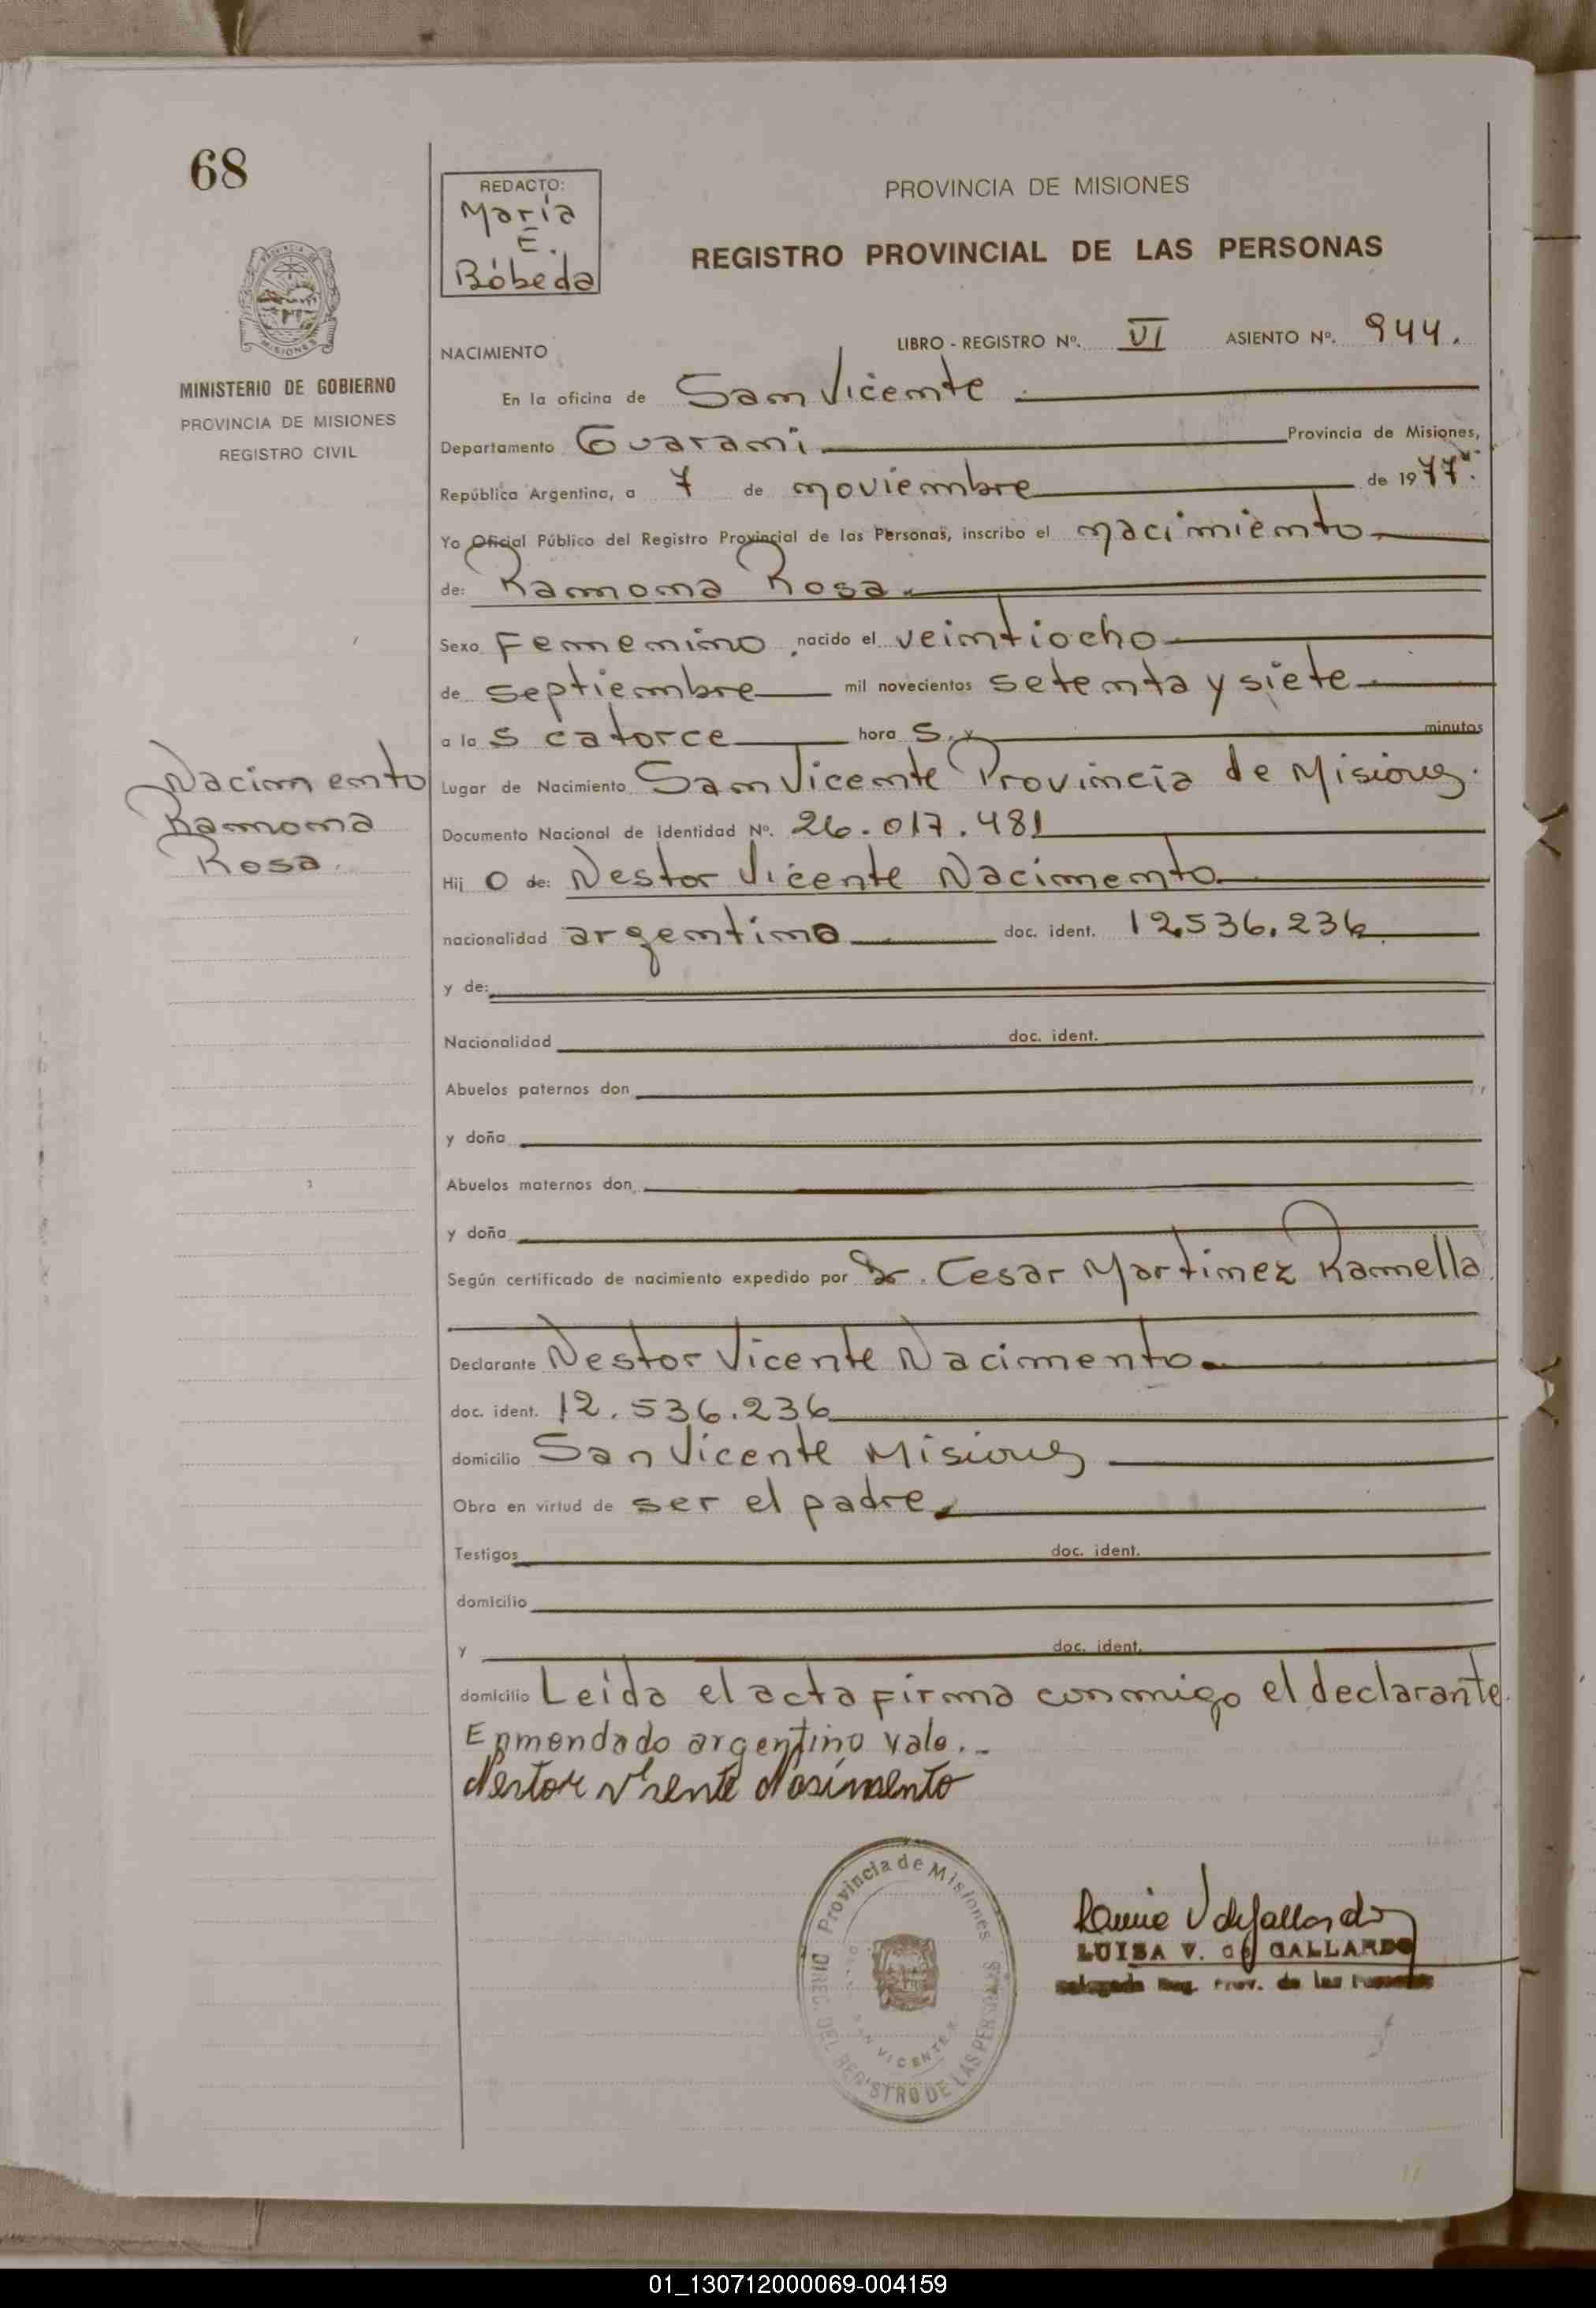 68
REDACTO:
María
E.
Bóbeda
PROVINCIA DE MISIONES
REGISTRO PROVINCIAL DE LAS PERSONAS
PROVINCIA
MISIONES
MINISTERIO DE GOBIERNO
PROVINCIA DE MISIONES
REGISTRO CIVIL
NACIMIENTO
LIBRO - REGISTRO Nº. VI ASIENTO Nº. 944.
En la oficina de San Vicente
Departamento Guarani Provincia de Misiones,
República Argentina, a 7 de noviembre de 1977.
Yo Oficial Público del Registro Provincial de las Personas, inscribo el nacimiento
de: Ramona Rosa
Sexo Femenino, nacido el veintiocho
de septiembre mil novecientos setenta y siete
a la s catorce hora s. y minutos
Nacimento
Ramona
Rosa.
Lugar de Nacimiento San Vicente Provincia de Misiones.
Documento Nacional de Identidad Nº. 26.017.481
Hij o de: Nestor Vicente Nacimento
nacionalidad argentino doc. ident. 12.536.236
y de:
Nacionalidad doc. ident.
Abuelos paternos don
y doña
Abuelos maternos don
y doña
Según certificado de nacimiento expedido por Dr. Cesar Martinez Ramella
Declarante Nestor Vicente Nacimento
doc. ident. 12.536.236
domicilio San Vicente Misiones
Obra en virtud de ser el padre
Testigos doc. ident.
domicilio
y doc. ident.
domicilio Leída el acta firma conmigo el declarante.
Enmendado argentino vale.-
Nestor Visente Nasimento
Provincia de Misiones
DIREC. DEL REGISTRO DE LAS PERSONAS
SAN VICENTE
LUISA V. de GALLARDO
Reg. Prov. de las
01_130712000069-004159